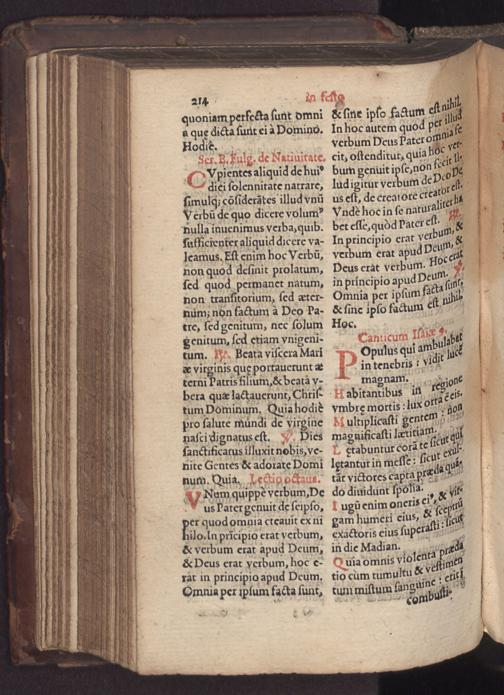 214
in festo
quoniam perfecta sunt omni
a quę dicta sunt ei à Domino.
Hodiè.
Ser. B. Fulg. de Natiuitate.
CVpientes aliquid de hui⁹
diei solennitate narrare,
simulq; cōsiderātes illud vnū
Verbū de quo dicere volum⁹
nulla inuenimus verba, quib.
sufficienter aliquid dicere va-
leamus. Est enim hoc Verbū,
non quod desinit prolatum,
sed quod permanet natum,
non transitorium, sed æter-
num; non factum à Deo Pa-
tre, sed genitum, nec solum
genitum, sed etiam vnigeni-
tum. ℟. Beata viscera Mari
æ virginis quę portauerunt æ
terni Patris filium, & beata v-
bera quæ lactauerunt, Chris-
tum Dominum. Quia hodiè
pro salute mundi de virgine
nasci dignatus est. ℣. Dies
sanctificatus illuxit nobis, ve-
nite Gentes & adorate Domi
num. Quia. Lectio octaua.
VNem quippè verbum, De
us Pater genuit de seipso,
per quod omnia creauit ex ni
hilo. In prīcipio erat verbum,
& verbum erat apud Deum,
& Deus erat verbum, hoc e-
rāt in principio apud Deum.
Omnia per ipsum facta sunt,
& sine ipso factum est nihil.
In hoc autem quod per illud
verbum Deus Pater omnia fe
cit, ostenditur, quia hoc ver-
bum genuit ipse, non fecit. Il-
lud igitur verbum de Deo De
us est, de creatore creator est.
Vndè hoc in se naturaliter ha
bet esse, quòd Pater est. ℟.
In principio erat verbum, &
verbum erat apud Deum, &
Deus erat verbum. Hoc erat
in principio apud Deum. ℣.
Omnia per ipsum facta sunt,
& sine ipso factum est nihil.
Hoc.
Canticum Isaiæ 9.
POpulus qui ambulabat
in tenebris : vidit lucē
magnam.
Habitantibus in regione
vmbrę mortis : lux orta est eis.
Multiplicasti gentem : non
magnificasti lætitiam.
Lętabuntur corā te sicut qui
lętantur in messe : sicut exul-
tāt victores capta præda quā-
do diuidunt spolia.
Iugū enim oneris ei⁹, & vir-
gam humeri eius, & sceptrū
exactoris eius superasti : sicut
in die Madian.
Quia omnis violenta præda
tio cum tumultu & vestimen
tum mistum sanguine : erit ī
combusti-